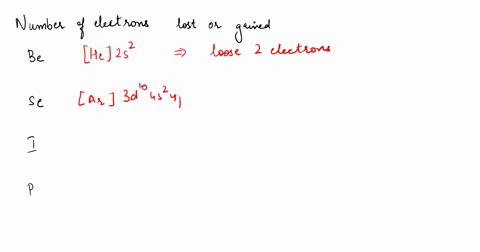 Number of electrons lost or gained
Be [He] 2s² ⇒ loose 2 electrons
Se [Ar] 3d¹⁰ 4s² 4p
I
P